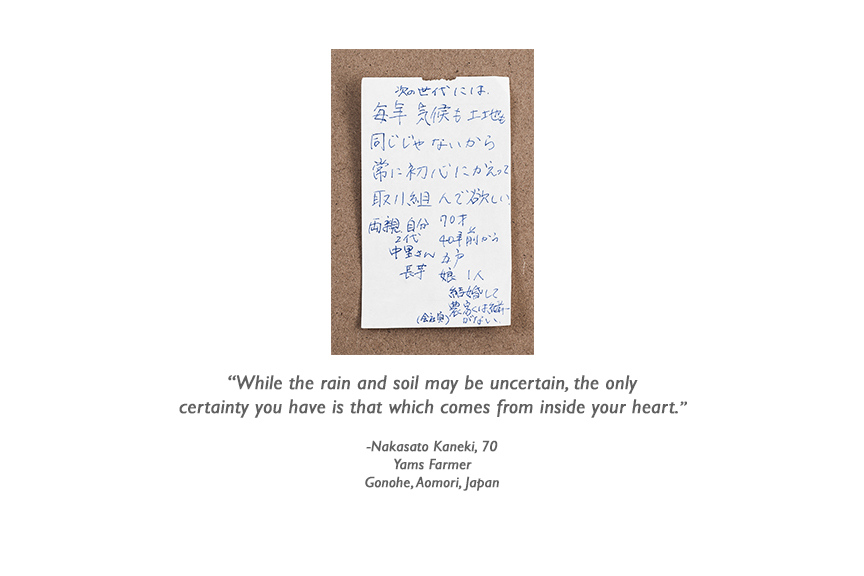 次の世代には、
毎年 気候も土地も
同じじゃないから
常に初心にかえって
取り組んで欲しい
両親 自分 70才
2代 40年前から
中里さん 五戸
長芋 娘 1人
結婚して
農家は
(会社員) がない
“While the rain and soil may be uncertain, the only
certainty you have is that which comes from inside your heart.”
-Nakasato Kaneki, 70
Yams Farmer
Gonohe, Aomori, Japan